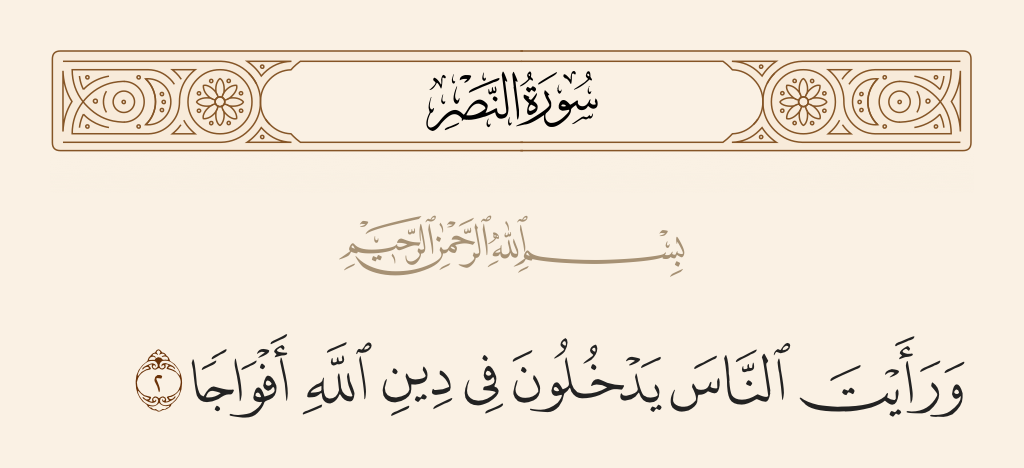 سُورَةُ النَّصْرِ
بِسْمِ ٱللَّهِ ٱلرَّحْمَٰنِ ٱلرَّحِيمِ
وَرَأَيْتَ ٱلنَّاسَ يَدْخُلُونَ فِى دِينِ ٱللَّهِ أَفْوَاجًا ٢